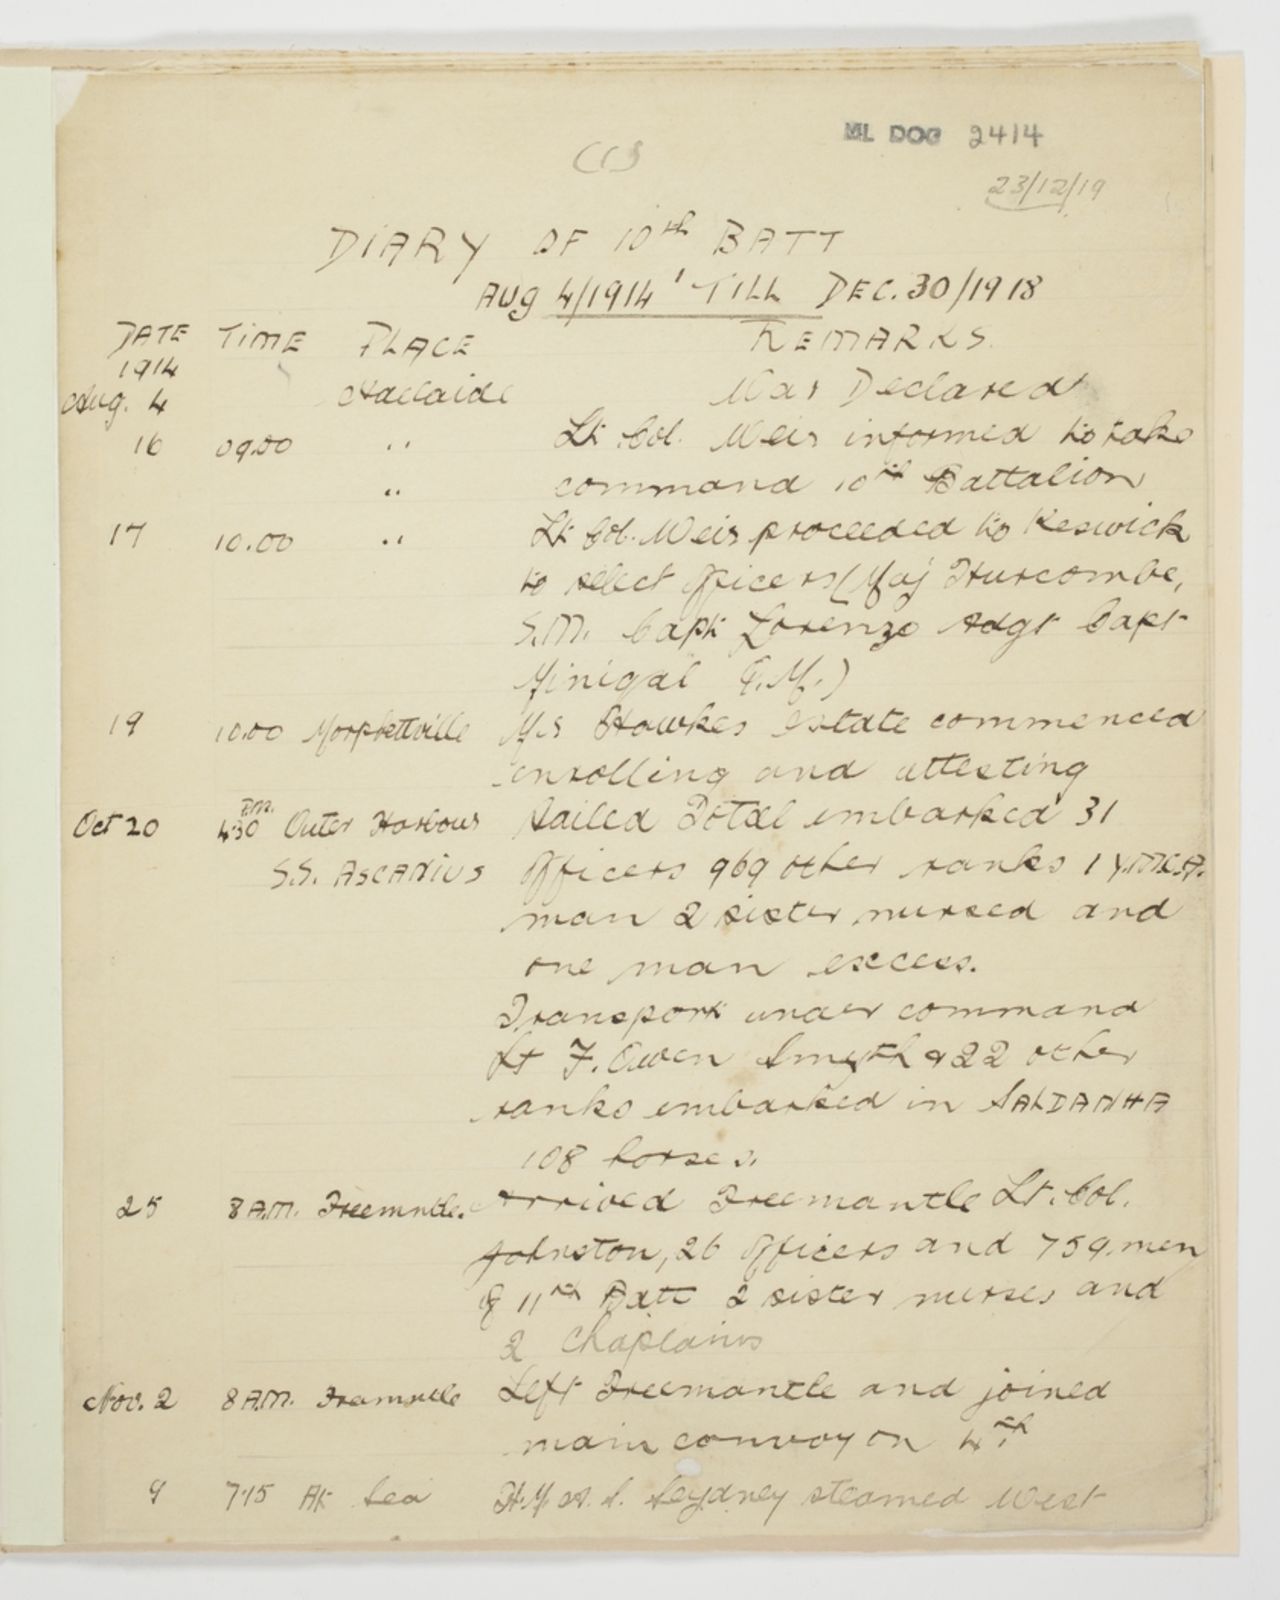 ML DOC 2414
(1)
23/12/19
DIARY OF 10th BATT
AUG 4/1914 'TILL DEC. 30/1918
DATE TIME PLACE REMARKS.
1914
Aug. 4 Adelaide War Declared
16 09.00 " Lt Col. Weir informed to take
" command 10th Battalion
17 10.00 " Lt Col. Weir proceeded to Keswick
to select officers (Maj Hurcombe,
S.M. Capt Lorenzo Adgt Capt
Minigal Q.M.)
19 10.00 Morphettville Mrs Hawkes estate commenced
enrolling and attesting
Oct 20 4.30 P.M. Outer Harbour Sailed Total embarked 31
S.S. ASCANIUS officers 969 other ranks 1 Y.M.C.A.
man 2 sister nursed and
one man excess.
Transport under command
Lt F. Owen Smyth & 22 other
ranks embarked in SALDANHA
108 horses.
25 8 A.M. Freemntle. Arrived Freemantle Lt. Col.
Johnston, 26 officers and 759 men
of 11th Batt 2 sister nurses and
2 Chaplains
Nov. 2 8 A.M. Framntle Left Freemantle and joined
main convoy on 4th
9 7.15 At Sea H.M.A.S. Seydney steamed West